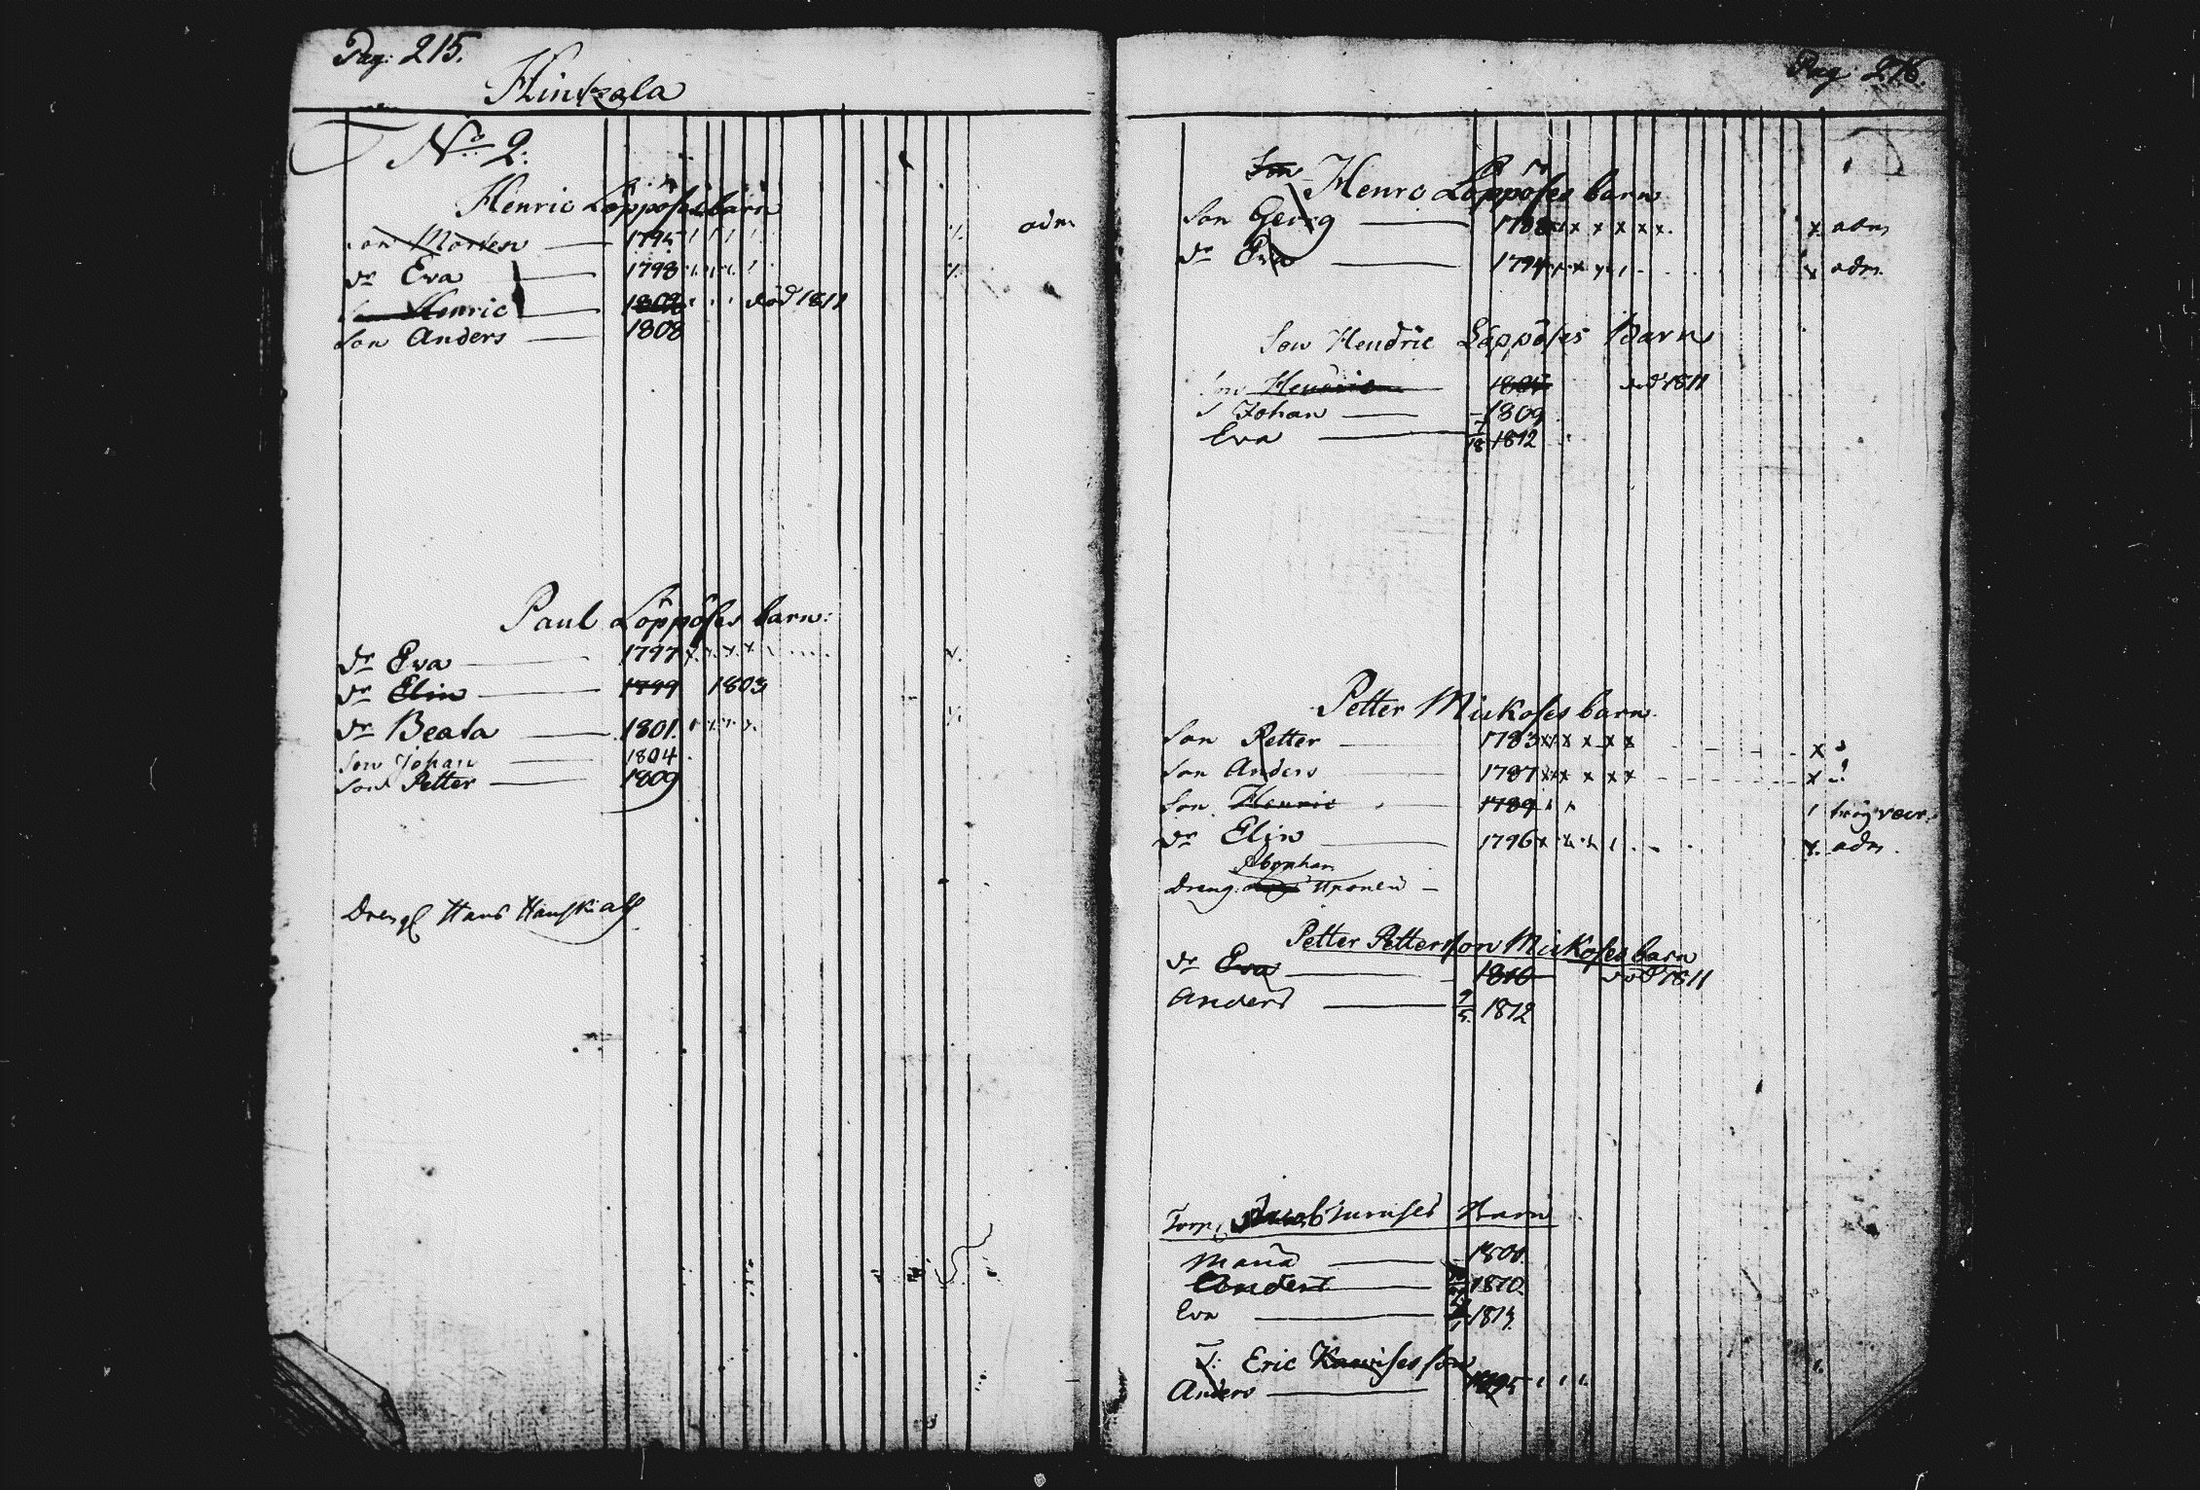 Pag: 215.
Hinkala
No 2:
Henric Löppöses barn
Son Morten 1795
dr Eva 1798
Son Henric 1802 död 1811
Son Anders 1808
adm
Paul Löppöses barn:
dr Eva 1797 x x x x
dr Elin 1799 1803
dr Beata 1801.
Son Johan 1804
Son Petter 1809
Dreng Hans
Pag: 216
Son Henric Löppöses barn
Son Georg 1788 x x x x x x x adm
dr Eva 1794 x adm
Son Hendric Löppöses Barn
Son Hendric död 1811
S Johan 1809
Eva 18 1812
Petter Mickoses barn
Son Petter 1783 x x x x x x x
Son Anders 1787 x x x x x x x
Son Henric 1789
dr Elin 1796 x adm
Abraham
Dreng
Petter Petterson Mickoses barn
dr Eva 1810 död 1811
Anders 9/5 1812
Torp. Barn
Maria 1808
Anders 1810
Eva
T: Eric son
Anders 1795